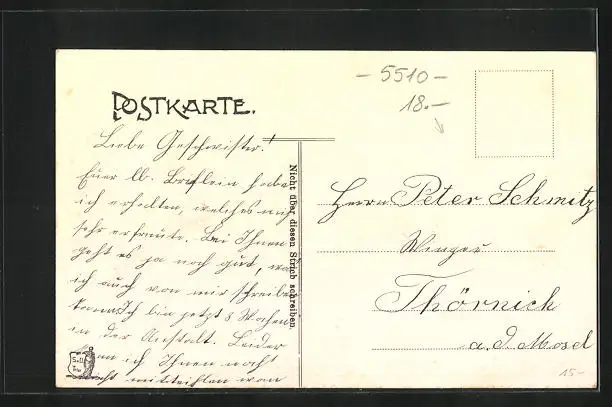 POSTKARTE.
Liebe Geschwister!
Euer lb. Brieflein habe
ich erhalten, welches mich
sehr erfreute. Bei Ihnen
geht es ja noch gut, was
ich auch von mir schreiben
kann. Ich bin jetzt 8 Wochen
in der Anstalt. Leider
kann ich Ihnen noch
nicht mitteihlen wan
Nicht über diesen Strich schreiben.
- 5510 -
18.-
Herrn Peter Schmitz
Winzer
Thörnich
a. d. Mosel
15-